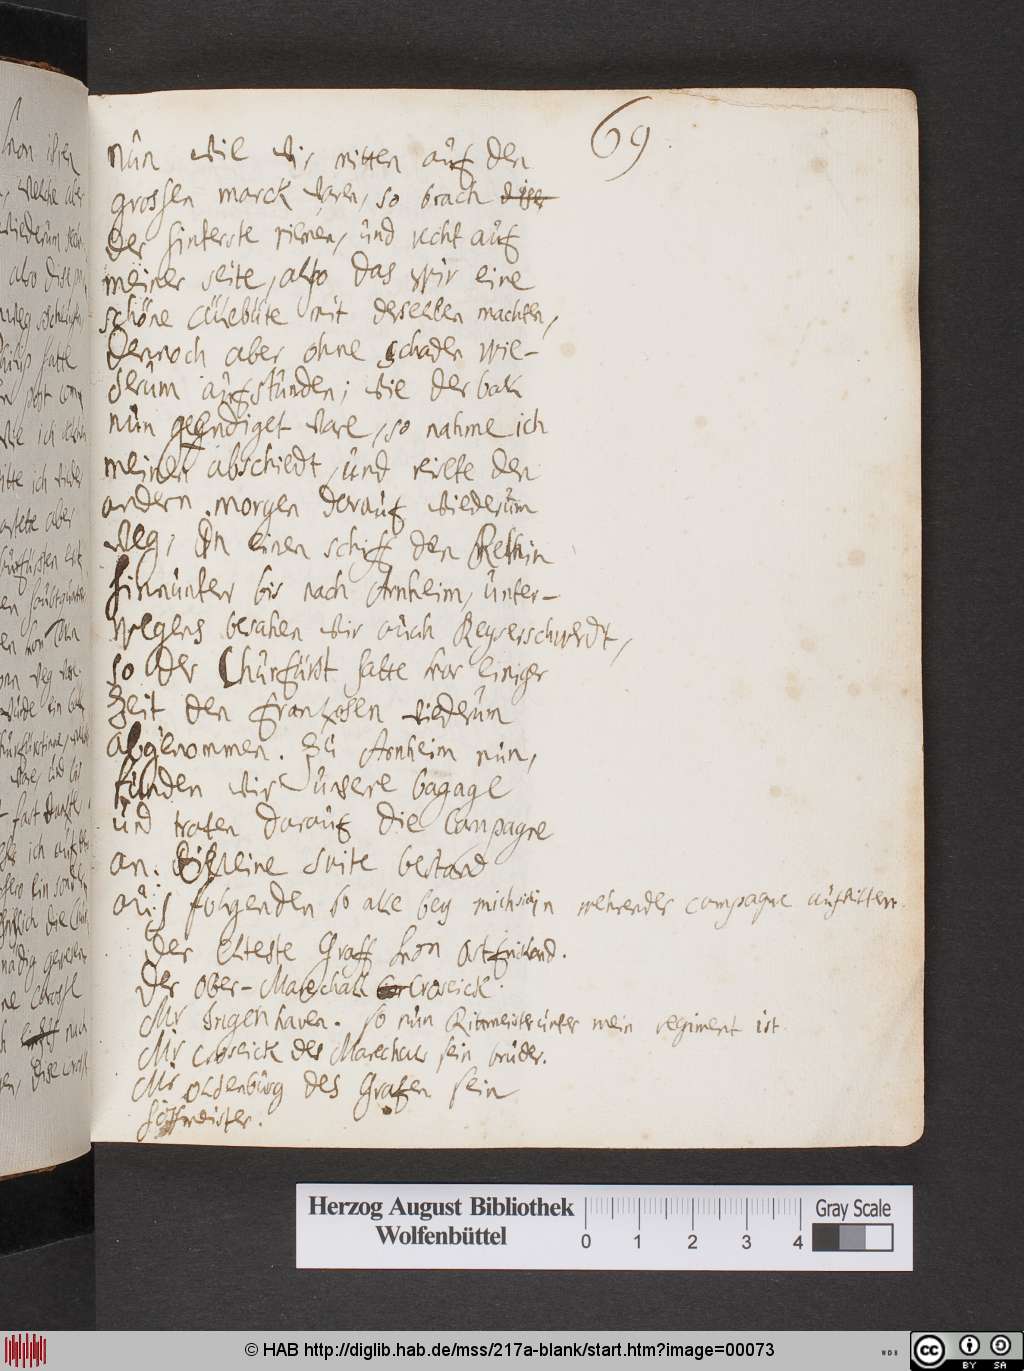 69
nûn wie wir mitten aûf den
grossen marck waren, so brach diser
der hinterste riemen, ûnd recht aûf
meiner seite, also das wir eine
schöne cûlebûte mit derselben machten,
dennoch aber ohne schaden wie-
derûm aûfstûnden; wie der bal
nûn geendiget ware, so nahme ich
meinen abschiedt, ûnd reiste den
andern morgen daraûf wiederûm
weg, in einen schiff den Rehin
hinnûnter bis nach Arnheim, ûnter-
wegens besahen wir aûch Keyserschwerdt,
so der Chûrfûrst hatte vor einiger
Zeit den Frantzosen wiederûm
abgenommen. Zû Arnheim nûn,
fûnden wir ûnsere bagage
ûnd traten daraûf die Campagne
an. Meine suite bestand
aûs folgenden so alle bey mich in wehrender campagne aûfhilten.
Der Elteste Graff von Ostfrisland.
Der Ober-Mareschall Croseick.
Mr Ingenhaven. so nûn Rittmeister ûnter mein regiment ist
Mr Croseick des Marechals sein brûder.
Mr Oldenbûrg des Grafen sein
hoffmeister.
Herzog August Bibliothek
Wolfenbüttel
0 1 2 3 4
Gray Scale
© HAB http://diglib.hab.de/mss/217a-blank/start.htm?image=00073
WDB
CC BY SA